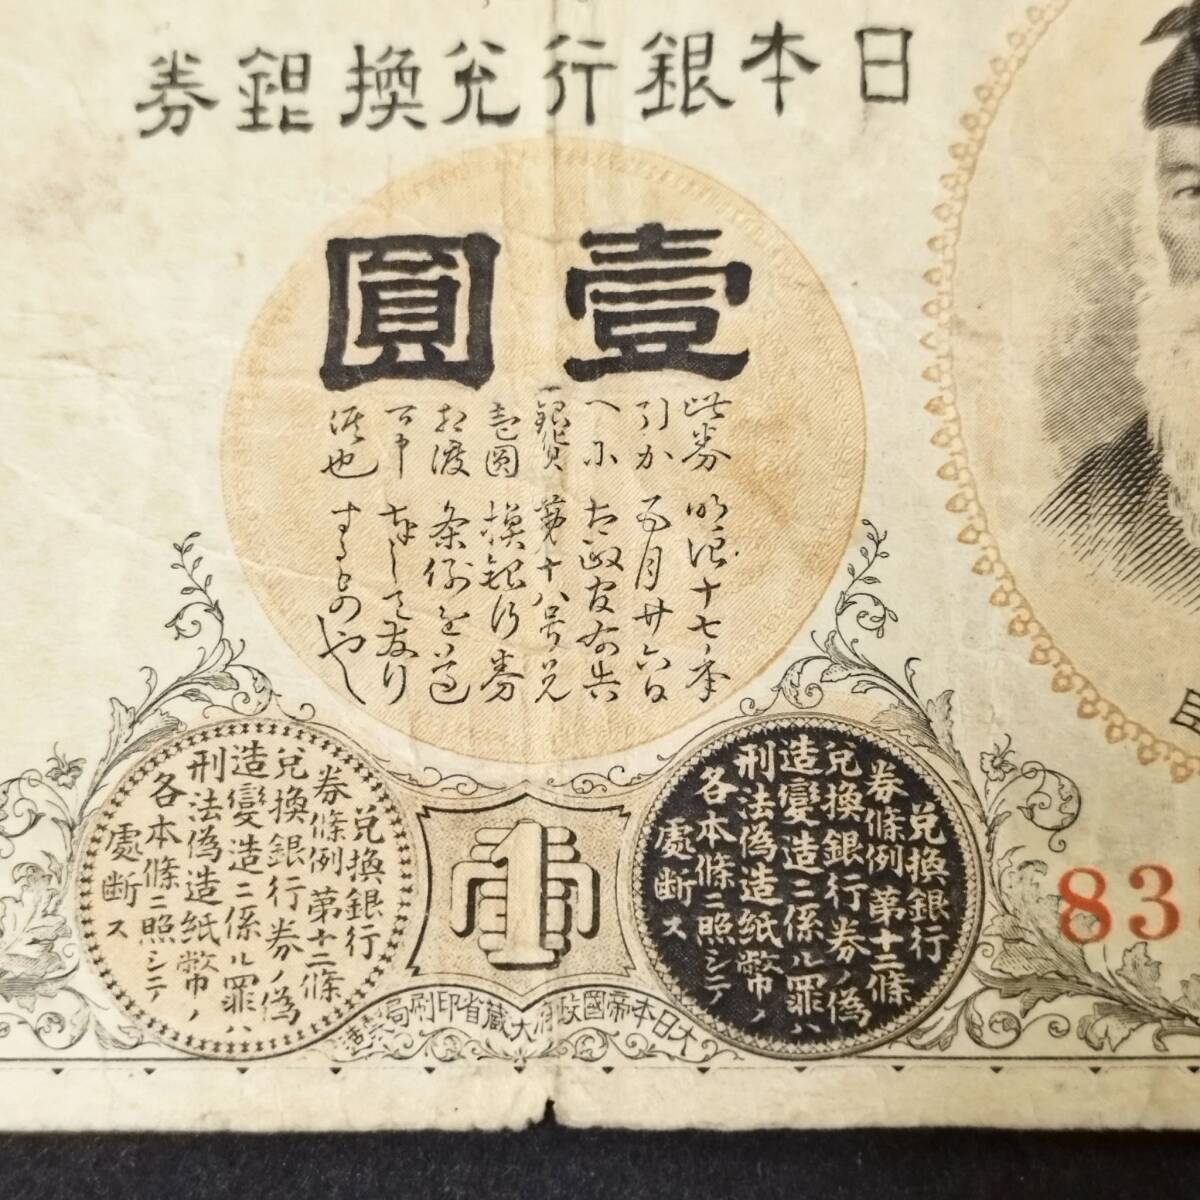 日本銀行兌換銀券
壹圓
此券
引か
へ尓
銀貨
壱圓
相渡
可申
候也
明治十七年
五月廿六日
太政官布告
第十八号兌
換銀行券
条例を遵
奉して发行
するものや
兌換銀行
券條例第十二條
兌換銀行券ノ偽
造變造ニ係ル罪ハ
刑法偽造紙幣ノ
各本條ニ照シテ
處断ス
兌換銀行
券條例第十二條
兌換銀行券ノ偽
造變造ニ係ル罪ハ
刑法偽造紙幣ノ
各本條ニ照シテ
處断ス
壹
1
大日本帝國政府大藏省印刷局製造
83